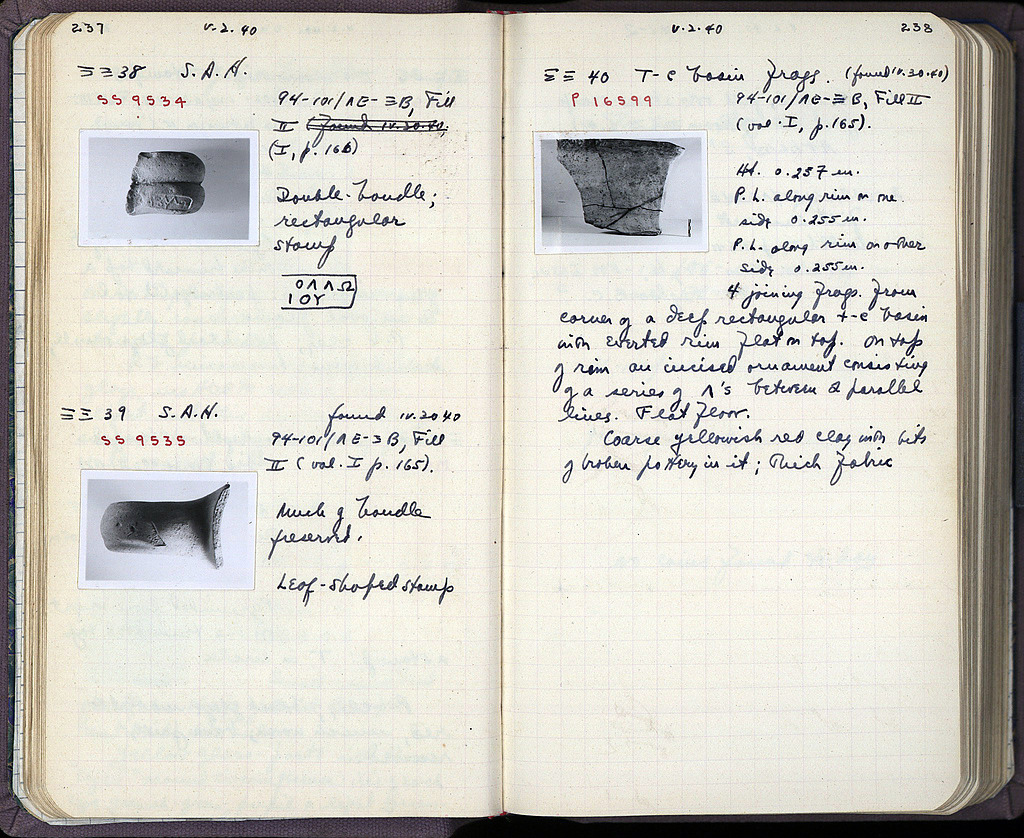 237
V. 2. 40
ΞΞ 38 S.A.H.
SS 9534
94-101/ΛE-ΞB, Fill
II (found IV.30.40,
(I, p. 166)
Double-handle;
rectangular
stamp
ΟΛΛΩ
ΙΟΥ
ΞΞ 39 S.A.H. found IV.30.40
SS 9535
94-101/ΛE-ΞB, Fill
II (vol. I p. 165).
Much of handle
preserved.
Leaf-shaped stamp
V. 2. 40
238
ΞΞ 40 T-c basin frags. (found IV.30.40)
P 16599
94-101/ΛE-ΞB, Fill II
(vol. I, p. 165).
Ht. 0.257 m.
P. L. along rim on one
side 0.255 m.
P. L. along rim on other
side 0.255 m.
4 joining frags. from
corner of a deep rectangular t-c basin
with everted rim flat on top. On top
of rim an incised ornament consisting
of a series of Λ's between 2 parallel
lines. Flat floor.
Coarse yellowish red clay with bits
of broken pottery in it; thick fabric